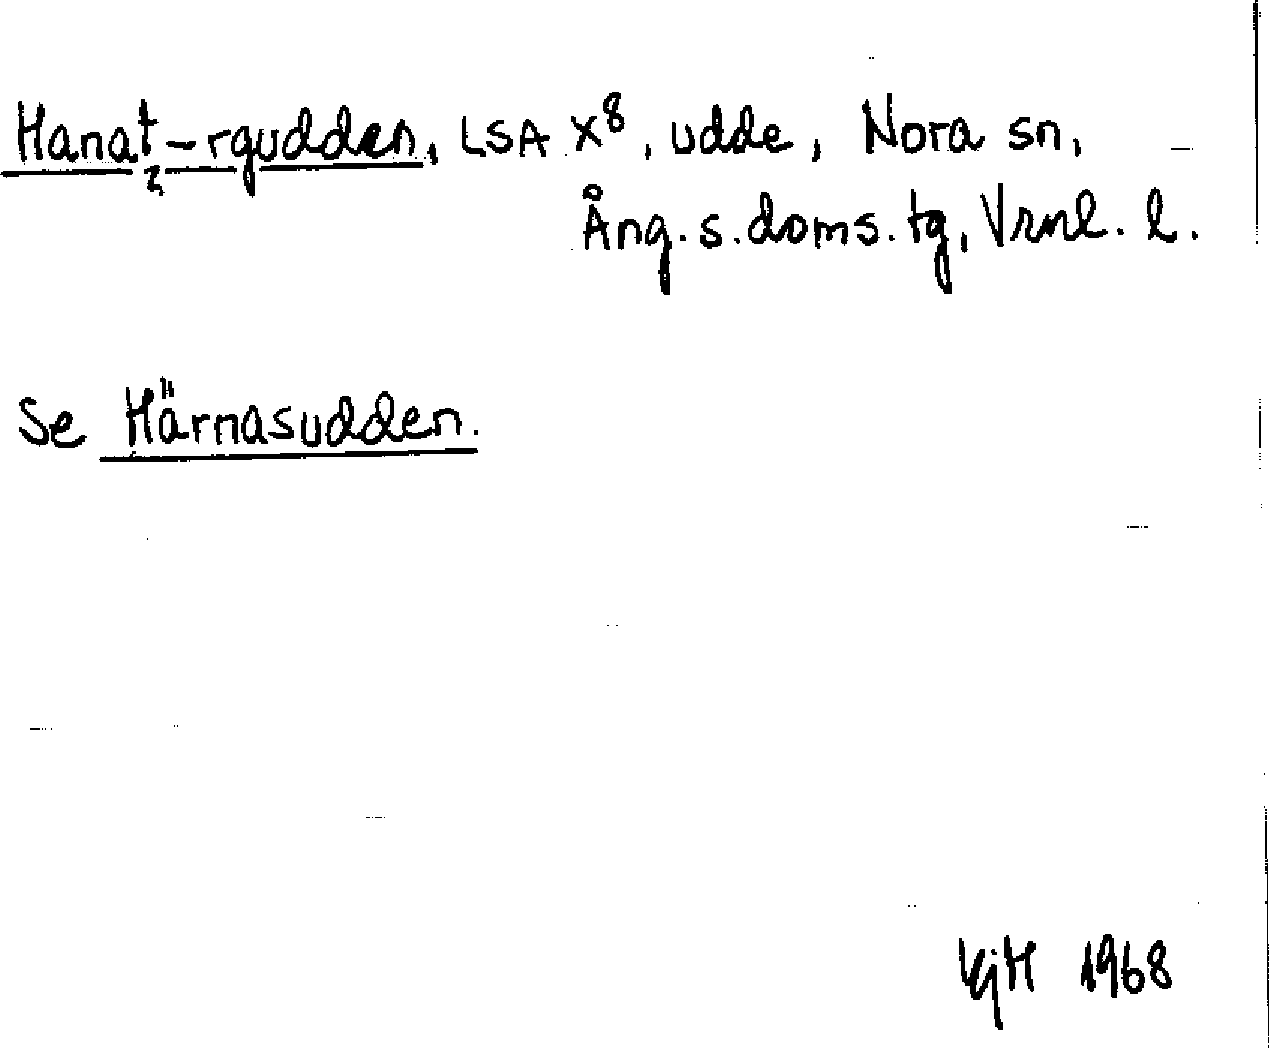 Hanat-rgudden, LSA X⁸, udde, Nora sn,
Ång.s.doms.tg, Vrnl. l.
Se Härnasudden.
KjH 1968